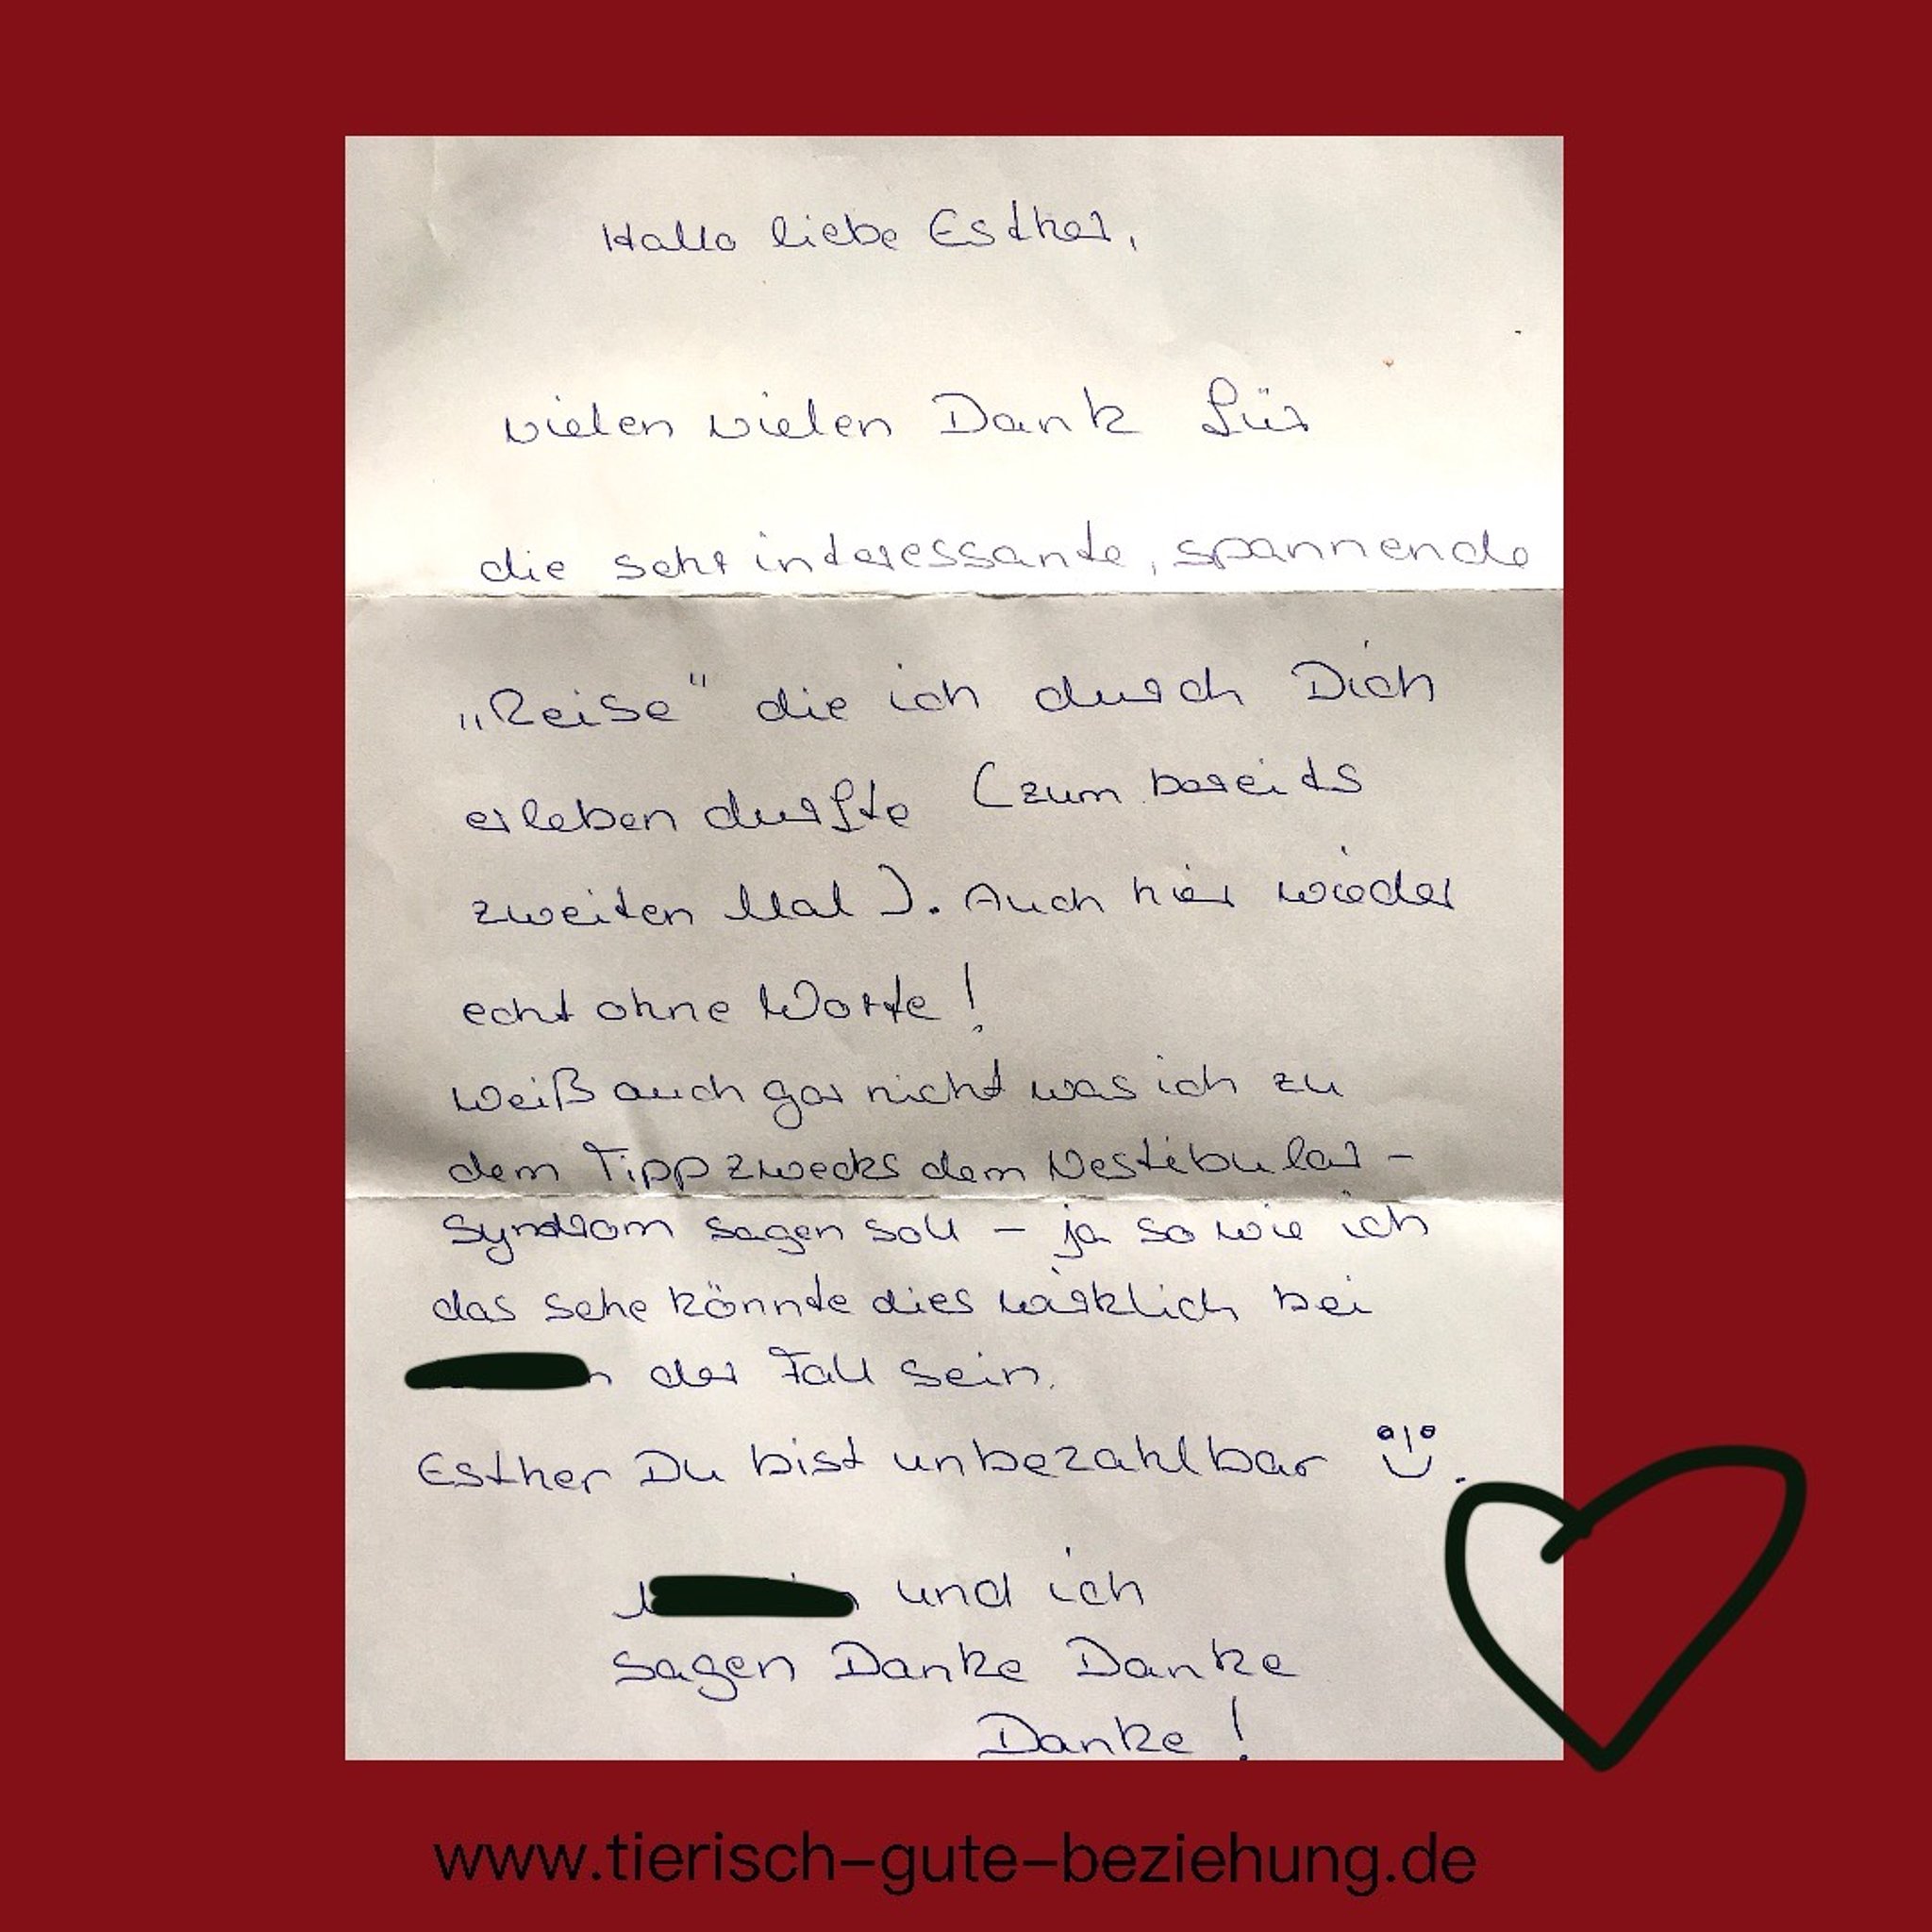 Hallo liebe Esther,
vielen vielen Dank für
die sehr interessante, spannende
„Reise" die ich durch Dich
erleben durfte (zum bereits
zweiten Mal). Auch hier wieder
echt ohne Worte!
weiß auch gar nicht was ich zu
dem Tipp zwecks dem Vestibular-
syndrom sagen soll - ja so wie ich
das sehe könnte dies wirklich bei
der Fall sein.
Esther Du bist unbezahlbar
und ich
sagen Danke Danke
Danke!
www.tierisch-gute-beziehung.de